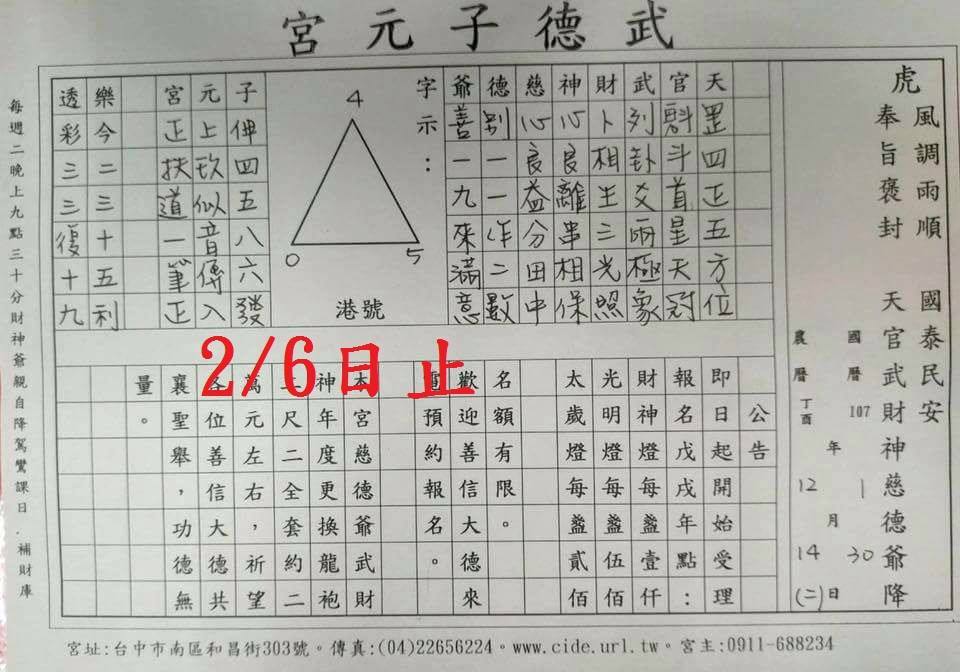 武德子元宮
虎
風調雨順 國泰民安
奉旨褒封 天官武財神慈德爺降
國曆107年1月30日
農曆丁酉年12月14日(二)
天罡四正五方位
官斗首星天
武列卦爻兩極象
財卜相生三光照
神心良離串相保
慈心良益分田中
德別一一作二數
爺善一九來滿意
字示:
4
0
5
港號
子伸四五八六發
元上玖似音傳入
宮正扶道一筆正
樂今二三十五利
透彩三三復十九
2/6日止
公告
即日起開始受理
報名戊戌年點:
財神燈每盞壹仟
光明燈每盞伍佰
太歲燈每盞貳佰
名額有限。
歡迎善信大德來
電預約報名。
本宮慈德爺武財
神年度更換龍袍
二尺二全套約二
萬元左右,祈望
各位善信大德共
襄聖舉,功德無
量。
每週二晚上九點三十分財神爺親自降駕鸞課日.補財庫
宮址:台中市南區和昌街303號。傳真:(04)22656224。www.cide.url.tw。宮主:0911-688234